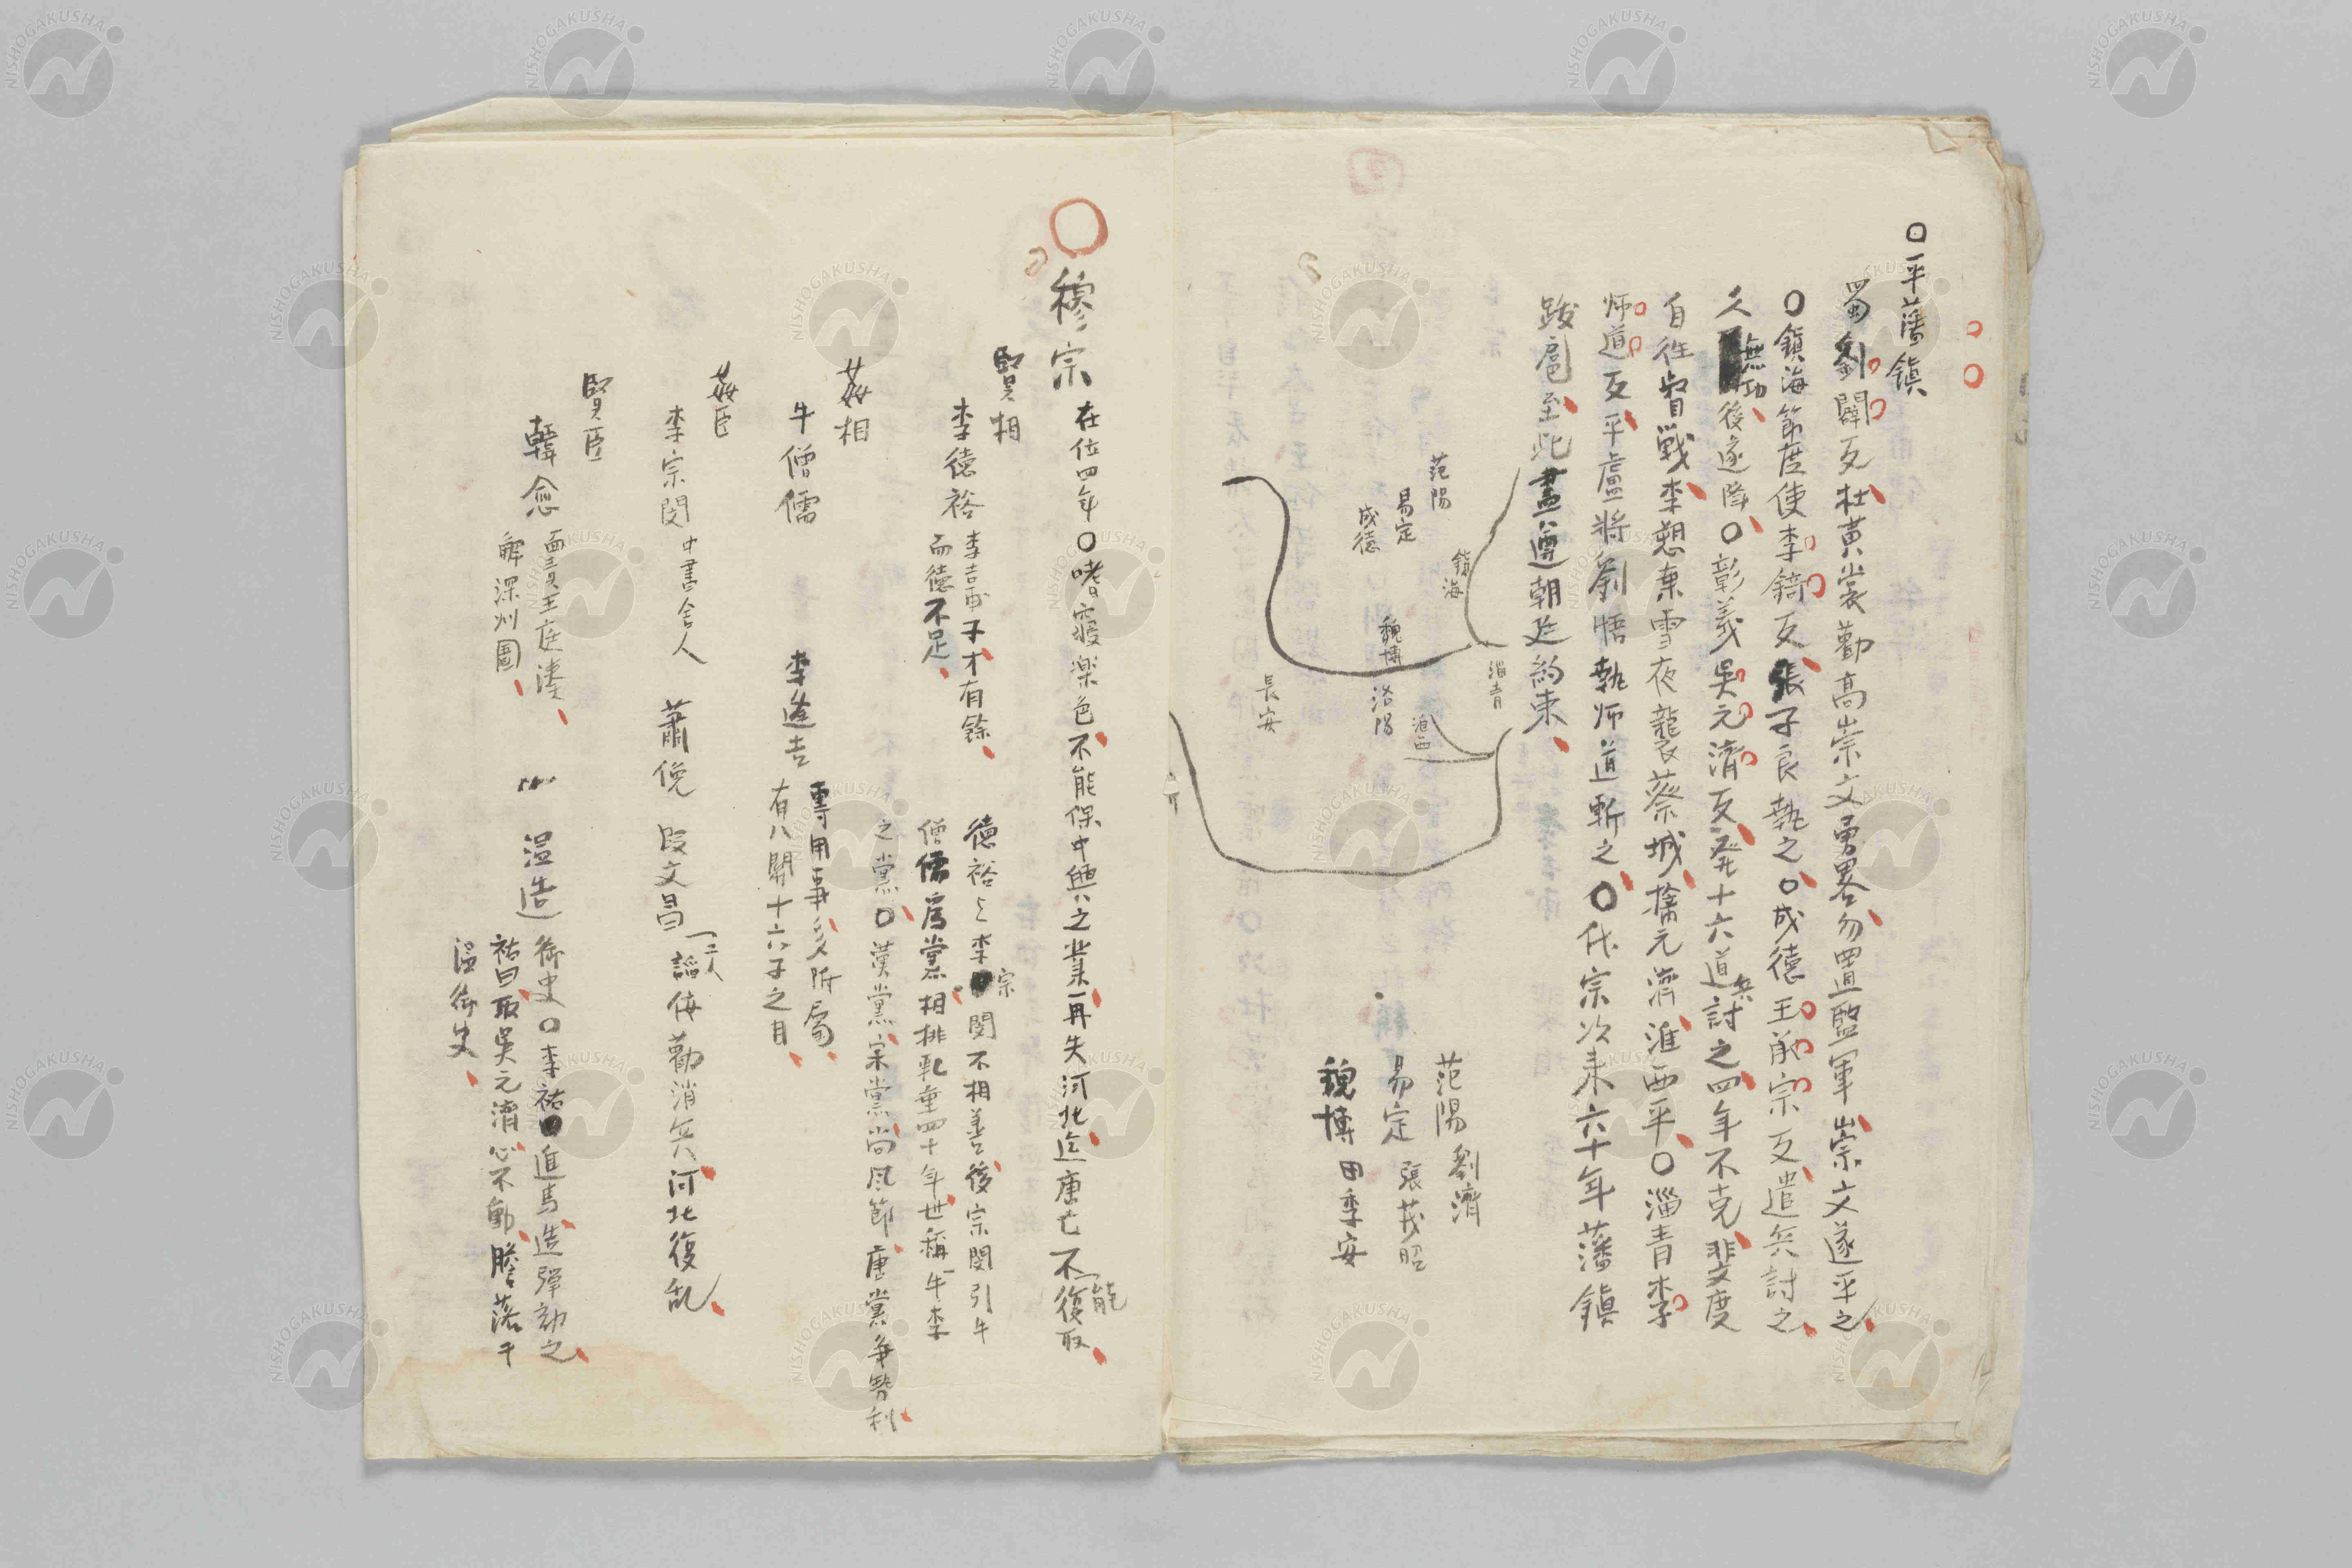 〇平藩鎮
蜀劉闢反杜黄裳勸高崇文勇畧勿置監軍崇文遂平之
〇鎮海節度使李錡反張子良執之〇成德王承宗反遣兵討之
久無功後遂降〇彰義吳元濟反発十六道兵討之四年不克裴度
自往督戰李愬乗雪夜襲蔡城擒元濟淮西平〇淄青李
師道反平盧將劉悟執师道斬之〇代宗次来六十年藩鎮
跋扈至此盡遵朝廷約束
范陽
易定
成德
鎮海
魏博
淄青
洛陽
淮西
長安
范陽 劉濟
易定 張茂昭
魏博 田季安
〇穆宗 在位四年〇嗜寝楽色不能保中興之業再失河北迄唐亡不能復取
賢相
李德裕 李吉甫子才有餘
而德不足
德裕与李宗閔不相善後宗閔引牛
僧儒為党相排軋垂四十年世稱牛李
之党〇漢黨宋黨尚風節唐黨争勢利
姦相
牛僧儒 李逢吉 專用事多附屬
有八關十六子之目
姦臣
李宗閔 中書舎人 蕭俛 段文昌 二人謟佞勸消兵河北復乱
賢臣
韓愈 面責王庭湊
解深州圍
温造 御史〇李祐進馬造彈劾之
祐曰取吳元濟心不動膽落于
温御史